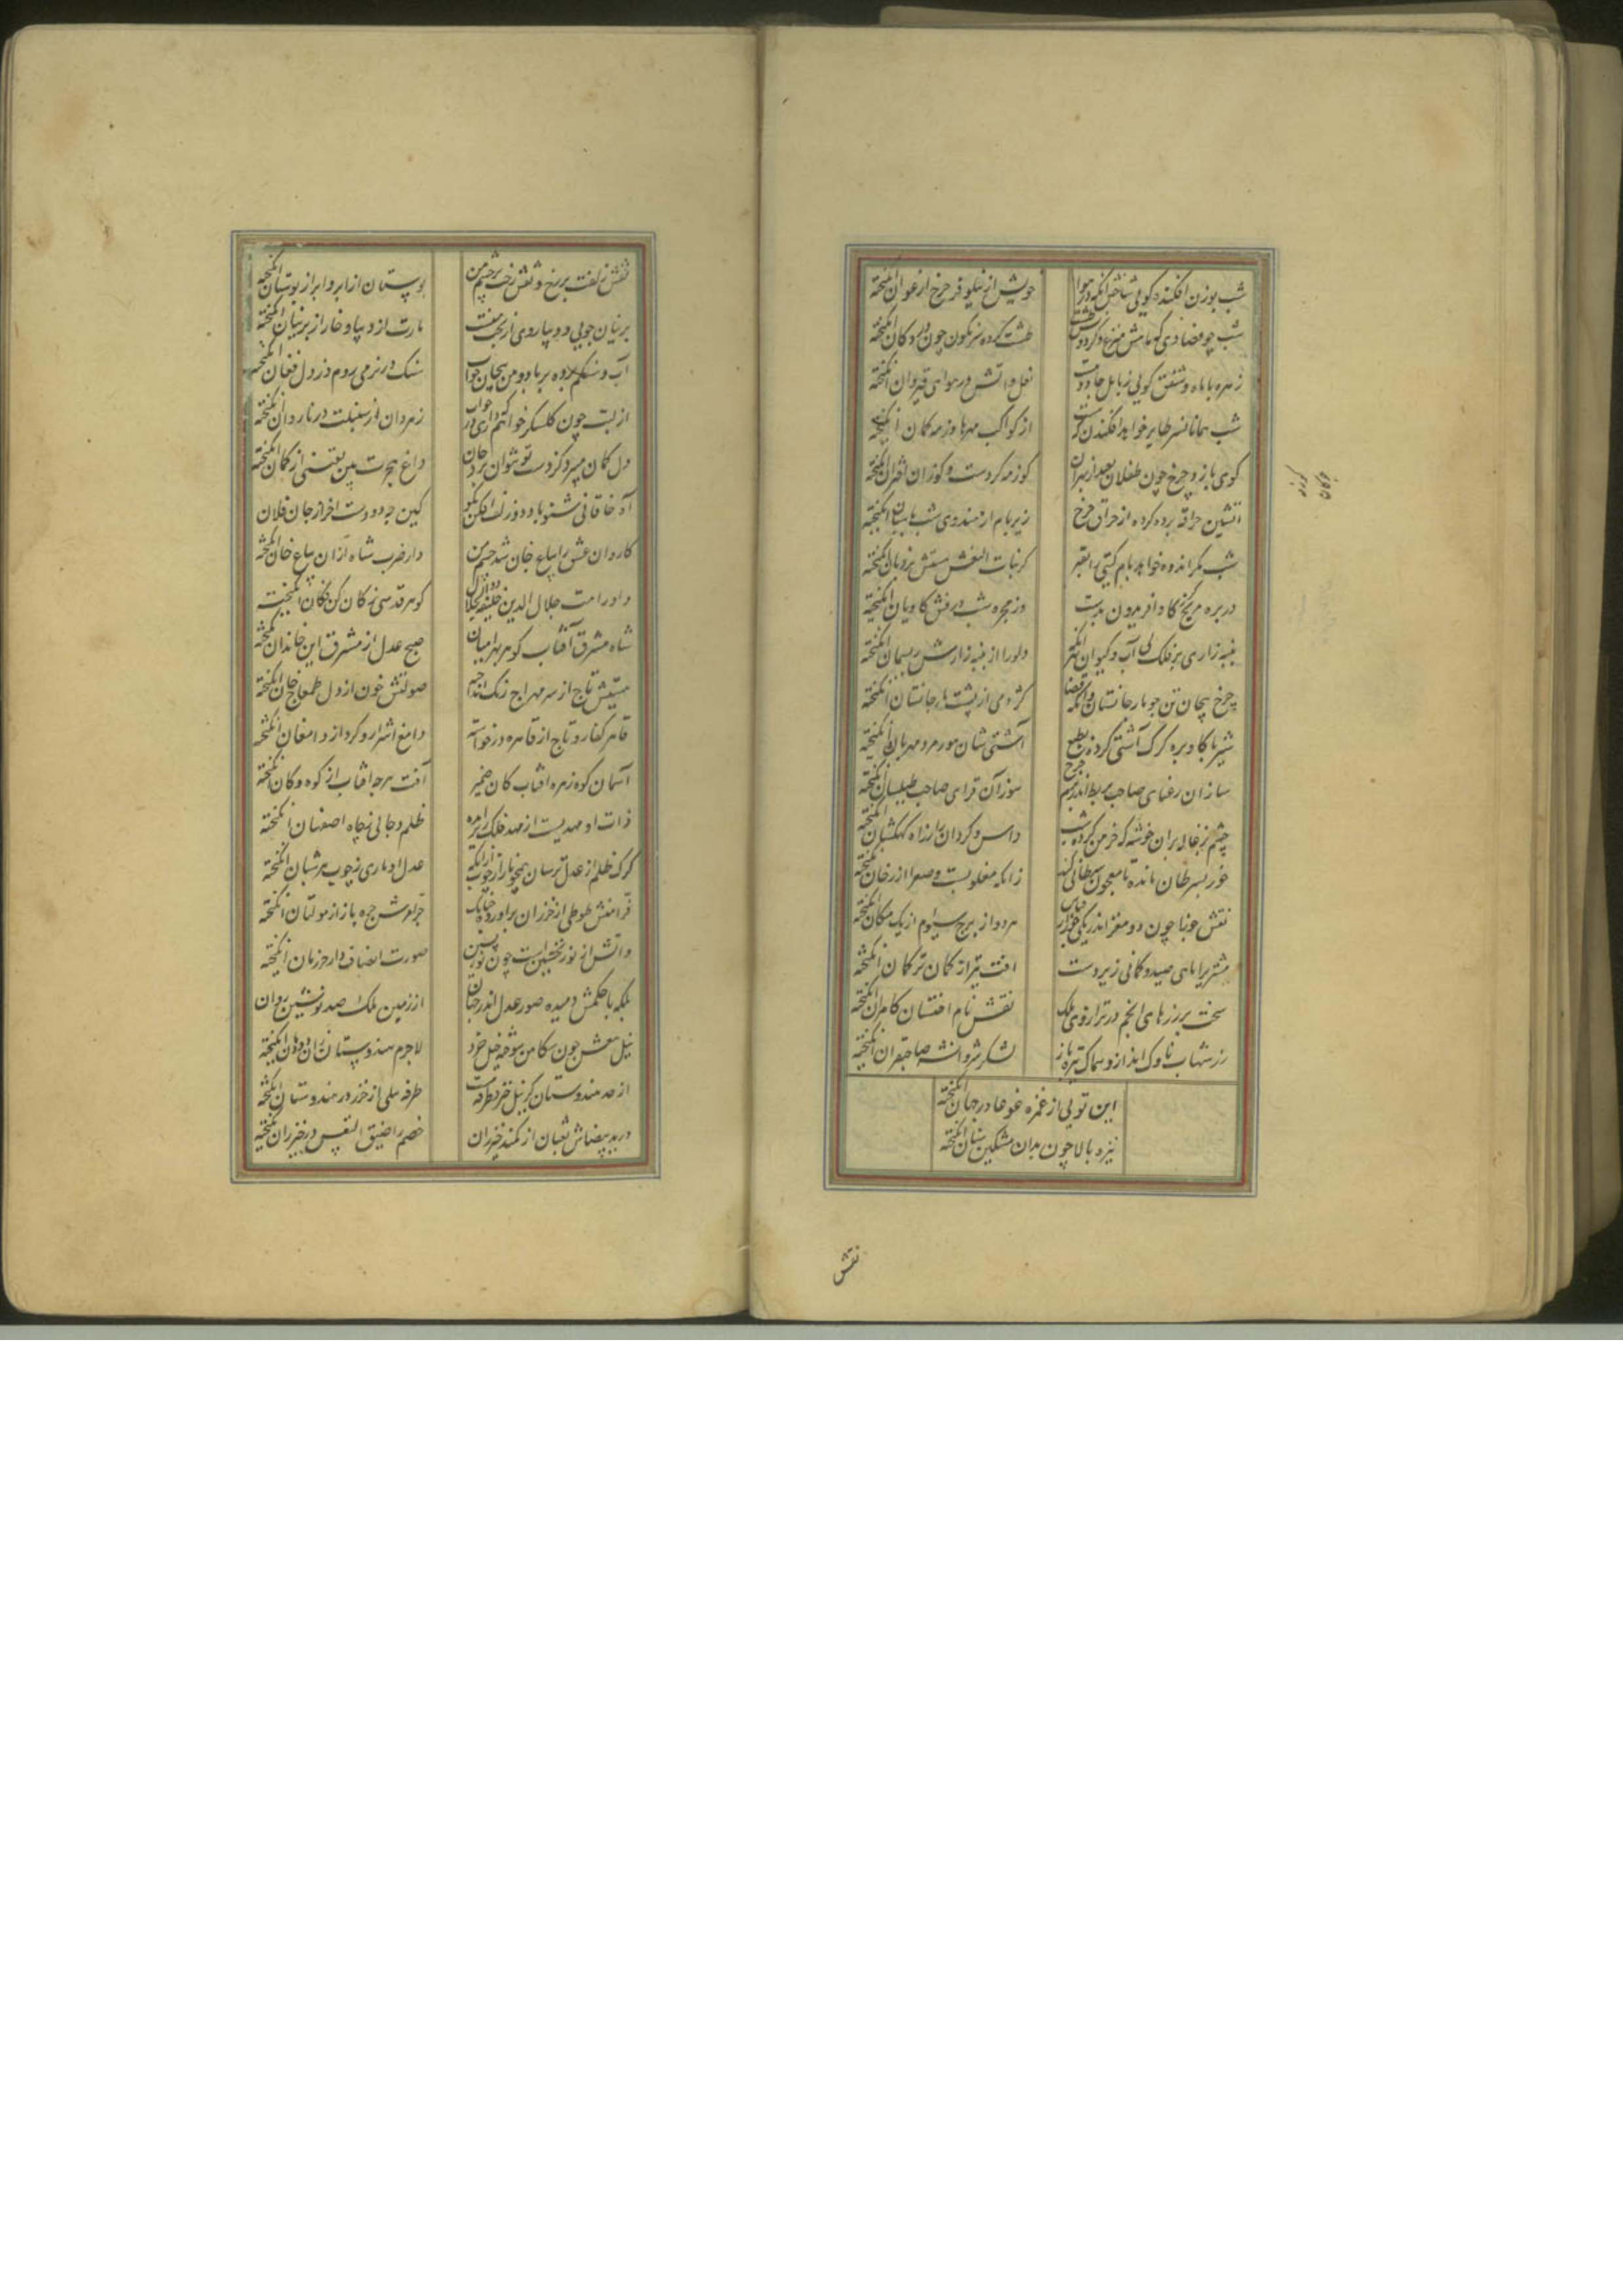 شب بوزن افکنده کویی شاخش انکه در هوا خونش از نیلوفر چرخ ارغوان انکیخته
شب چو فصادی که ماهش مبضع و کردونش طشت طشت کرده سرنکون خون در دکان انکیخته
زهره با ماه و شفق کویی ز بابل جادوست نعل و آتش در هوای قیروان انکیخته
شب همانا نسر طایر خواهد افکندن که از کواکب مهرها وز مه کمان انکیخته
کوی بازد چرخ چون طفلان بعید از بهر آن کوز مه کردست و کوز آن اختران انکیخته
آتشین حراقه برده کرده از حراق چرخ زیر بام از هندوی شب پاسبان انکیخته
شب مکر اندوه خواهد بام کیتی را بقیر کز بنات النعش هستش نردبان انکیخته
در بره مریخ کاو افریدون بدست وز مجره شب درفش کاویان انکیخته
پنبه‌زاری بر فلک بی آب و کیوان بهر آنکه دلو را از پنبه‌زارش ریسمان انکیخته
چرخ پیچان تن چو مار جانستان وانکه قضا کژدمی از پشت مار جانستان انکیخته
شیر با کاو و بره کرک آشتی کرده بطبع آشتی شان مورمرد مهربان انکیخته
سازان رعنای صاحب بربط اندر بزم چرخ سوز آن قرای صاحب طیلسان انکیخته
چشم بزغاله بران خوشه که خرمن کرده شب داس و کردان ز راه کهکشان انکیخته
خور بسرطان مانده تا معجون سرطانی کند زانکه مغلوبست و صفرا از رخان انکیخته
نقش جوزا چون دو مغز اندر یکی جوز از قیاس هردو از برج سیوم از یک مکان انکیخته
مشتری را ماهی صید و کمانی زیر دست افت تیر از کمان ترکمان انکیخته
سخت بر زرهای انجم در ترازوی فلک نقش نام اخستان کامران انکیخته
رز شهاب ناوک انداز و سماک نیزه باز لشکر شروانشه صاحبقران انکیخته
این تویی از غمزه غوغا در جهان انکیخته
نیزه بالا چون بدان مشکین سنان انکیخته
نقش
نقش زلفت بر رخ و نقش رخت بر چشم من بوستان از ابر و ابر از بوستان انکیخته
پرنیان خویی و دیبا روی از بخت منست مارت از دیبا و خار از پرنیان انکیخته
آب و سنکم داده بر باد و من پیچان جواب سنک در نرمی روم در دل فغان انکیخته
از لبت چون کلشکر خواهم که داری در جواب زهر دان از سنبلت در ناردان انکیخته
دل کمان میبرد کز دست تو نتوان برد جان داغ هجرت بین یقینی از کمان انکیخته
آه خاقانی شنو با دود زلف افکن بکو کین چه دودست اخر از جان فلان
کاروان عشق را بیاع جان شد چشم من دارضرب شاه ازان بیاع خان انکیخته
داور امت جلال الدین خلیفه ذوالجلال کوهر قدسی ز کان کن فکان انکیخته
شاه مشرق آفتاب کوهر بهرامیان صبح عدل از مشرق این خاندان انکیخته
هیبتش تاج از سر مهراج زنک انداخته صولتش خون از دل طمغاج خان انکیخته
قاهر کفار و تاج از قاهره درخواسته دامغ اشرار و کرد از دامغان انکیخته
آسمان کوه زهره افتاب کان ضمیر آفت هرچه افتاب از کوه و کان انکیخته
ذات او مهدیست از مهد فلک زیر آمده ظلم دجالی ز چاه اصفهان انکیخته
کرک ظلم از عدل ترسان همچو مار از چوب ازانکه عدل او ماری ز چوب هر شبان انکیخته
قرامنش طوطی از خزران براورده چنانک جرامرش جره باز از مولتان انکیخته
دانش از نور نخستین است چون نور پسین صورت انصاف در اخر زمان انکیخته
بلکه با حکمش دمیده صور عدل اندر جهان از زمین ملک صد نوشین روان
نیل مغش چون سکاهن سوخته خیل خزر لاجرم هندوستان زان دودمان انکیخته
از حد هندوستان کز پیل خیزد طرفه نیست طرفه پیلی از خزر در هندوستان انکیخته
در ید بیضاش ثعبان از کمند خیزران خصم را ضیق النفس در خیزران انکیخته